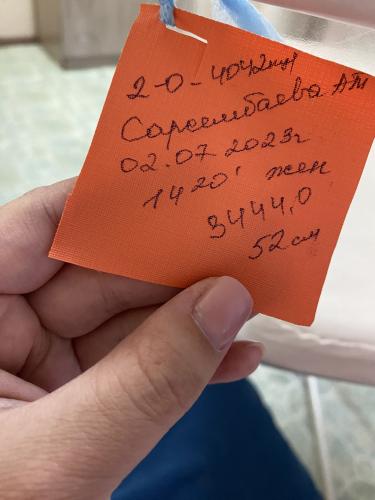 2-0-4042
Сарсембаева АТ
02.07.2023г
14 20' жен
3444,0
52 см